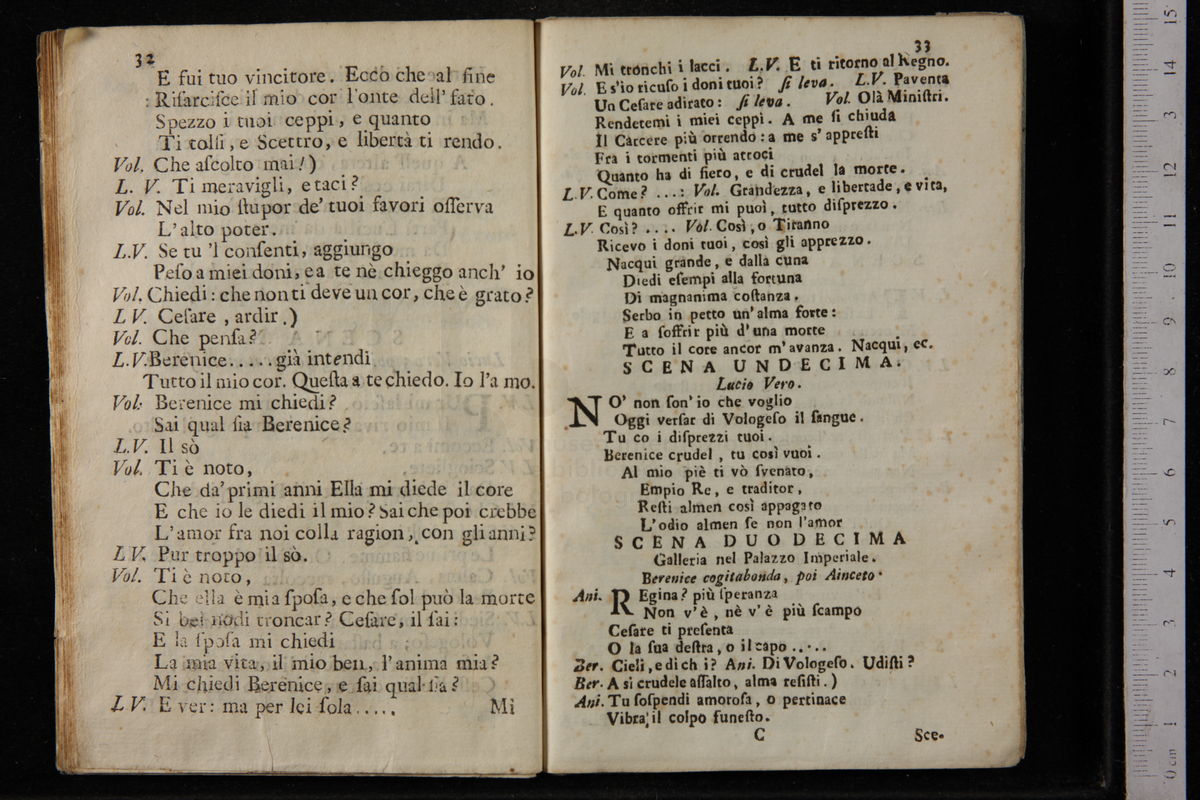 32
E fui tuo vincitore. Ecco che al fine
: Riſarciſce il mio cor l'onte dell' fato.
Spezzo i tuoi ceppi, e quanto
Ti tolſi, e Scettro, e libertà ti rendo.
Vol. Che aſcolto mai!)
L. V. Ti meravigli, e taci?
Vol. Nel mio ſtupor de' tuoi favori oſſerva
L'alto poter.
L.V. Se tu 'l conſenti, aggiungo
Peſo a miei doni, e a te nè chieggo anch' io
Vol. Chiedi: che non ti deve un cor, che è grato?
L V. Ceſare, ardir.)
Vol. Che penſa?
L.V. Berenice..... già intendi
Tutto il mio cor. Queſta a te chiedo. Io l'a mo.
Vol. Berenice mi chiedi?
Sai qual ſia Berenice?
L.V. Il sò
Vol. Ti è noto,
Che da' primi anni Ella mi diede il core
E che io le diedi il mio? Sai che poi crebbe
L'amor fra noi colla ragion, con gli anni?
L V. Pur troppo il sò.
Vol. Ti è noto,
Che ella è mia ſpoſa, e che ſol può la morte
Si bei nodi troncar? Ceſare, il ſai:
E la ſpoſa mi chiedi
La mia vita, il mio ben, l'anima mia?
Mi chiedi Berenice, e ſai qual ſia?
L V. E ver: ma per lei ſola.....
Mi
33
Vol. Mi tronchi i lacci. L.V. E ti ritorno al Regno.
Vol. E s'io ricuſo i doni tuoi? ſi leva. L.V. Paventa
Un Ceſare adirato: ſi leva. Vol. Olà Miniſtri.
Rendetemi i miei ceppi. A me ſi chiuda
Il Carcere più orrendo: a me s' appreſti
Fra i tormenti più atroci
Quanto ha di fiero, e di crudel la morte.
L.V. Come? ...: Vol. Grandezza, e libertade, e vita,
E quanto offrir mi puoi, tutto diſprezzo.
L.V. Così? .... Vol. Così, o Tiranno
Ricevo i doni tuoi, così gli apprezzo.
Nacqui grande, e dalla cuna
Diedi eſempi alla fortuna
Di magnanima coſtanza.
Serbo in petto un' alma forte:
E a ſoffrir più d'una morte
Tutto il core ancor m'avanza. Nacqui, ec.
SCENA UNDECIMA.
Lucio Vero.
NO' non ſon' io che voglio
Oggi verſar di Vologeſo il ſangue.
Tu co i diſprezzi tuoi.
Berenice crudel, tu così vuoi.
Al mio piè ti vò ſvenato,
Empio Re, e traditor,
Reſti almen così appagato
L'odio almen ſe non l'amor
SCENA DUODECIMA
Galleria nel Palazzo Imperiale.
Berenice cogitabonda, poi Ainceto.
Ani. REgina? più ſperanza
Non v'è, nè v'è più ſcampo
Ceſare ti preſenta
O la ſua deſtra, o il capo .....
Ber. Cieli, e di ch i? Ani. Di Vologeſo. Udiſti?
Ber. A si crudele aſſalto, alma reſiſti.)
Ani. Tu ſoſpendi amoroſa, o pertinace
Vibra il colpo funeſto.
C
Sce-